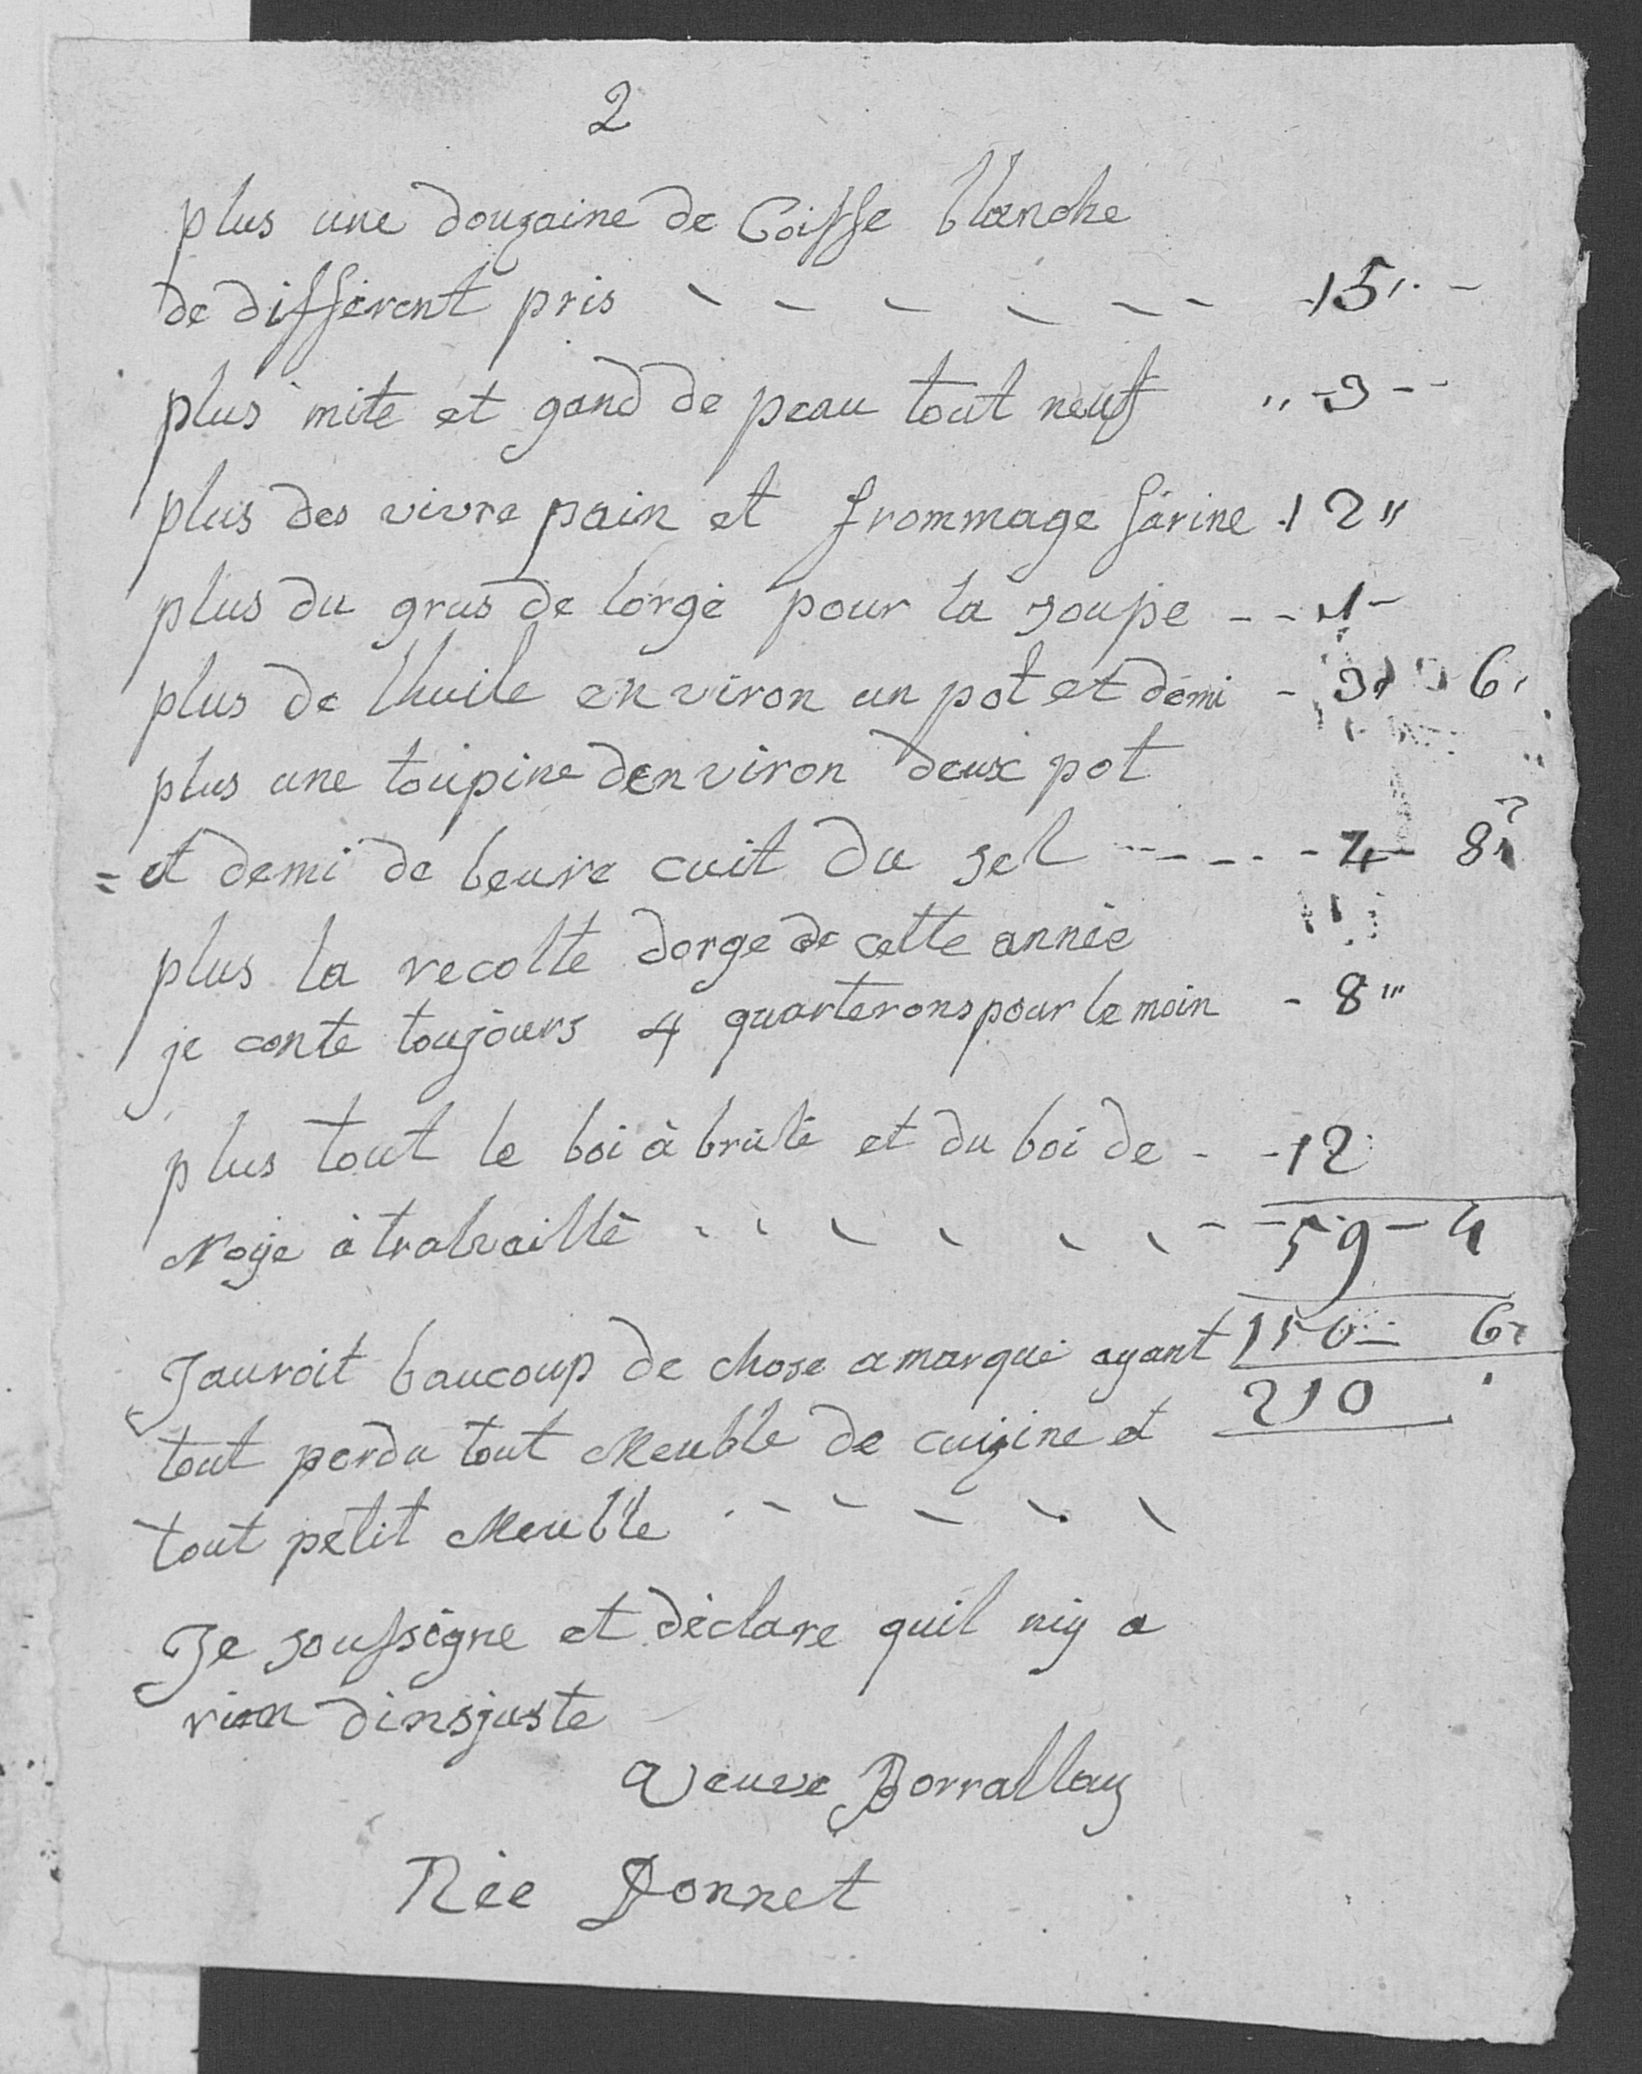 2
plus une douzaine de Coisse blanche
de different pris - - - - - - 15 -
plus mite et gand de peau tout neuf " - 3 - -
plus des vivre pain et frommage farine 12 "
plus du grus de lorge pour la soupe - - 1 -
plus de lhuile environ un pot et demi - 3 6
plus une toupine denviron deux pot
= et demi de beure cuit du sel - - - - 4 - 8
plus la recolte dorge de cette année
je conte toujours 4 quarterons pour le moin - 8 "
plus tout le boi à brulé et du boi de - - 12
Noye à travaillé - - - - - - - 59 - 4
Jauroit baucoup de chose a marqué ayant 150 - 6
tout perdu tout Meuble de cuizine et 210
tout petit Meuble - - - - - -
Je soussigne et déclare quil niy a
rien dinsjuste
Veuve Borrallay
Née Donnet